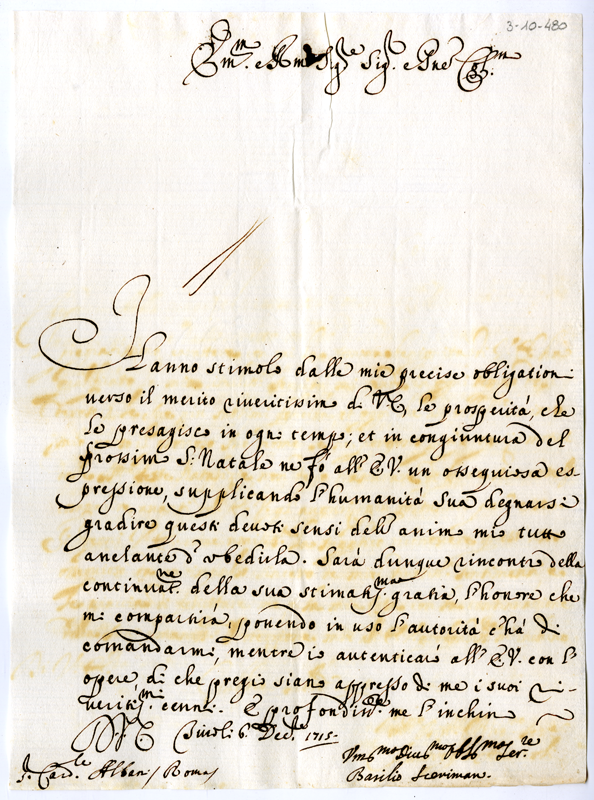 3-10-480
Em.mo e Rmo Sig.re Sig.r e Pne Col.mo
Hanno stimolo dalle mie precise obligationi
verso il merito riveritissimo di V.E. le prosperità, che
le presagisco in ogni tempo; et in congiuntura del
prossimo S. Natale ne fò all' E.V. un ossequiosa es-
pressione, supplicando l'humanità sua degnarsi
gradire questi devoti sensi dell' animo mio tutto
anelante d' ubedirla. Sarà dunque rincontro della
continuat.ne della sua stimatis.ma gratia, l'honore che
mi compartirà, ponendo in uso l'autorità c'hà di
comandarmi, mentre io autenticarò all' E.V. con l'
opere di che pregio siano appresso di me i suoi ri-
veritis.mi cenni. E profondam.te me l'inchino
D. V. E. Tivoli 6 Dec.bre 1715.
Um.mo Div.mo Obl.mo Ser.re
S.r Card.le Albani Roma
Basilio Sceriman.